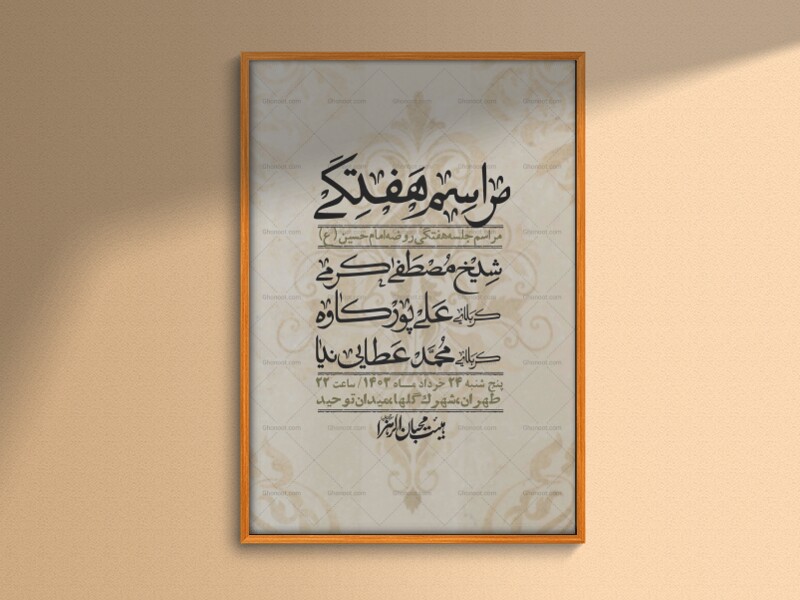 مراسم هفتگی
مراسم جلسه هفتگی روضه امام حسین (ع)
شیخ مصطفی کرمی
کربلائی علی پورکاوه
کربلائی محمد عطایی نیا
پنج شنبه ۲۴ خرداد مـاه ۱۴۰۳ / ساعت ۲۲
طهران،شهرک گلها،میدان توحید
هیئت محبان الزهرا
Ghonoot.com